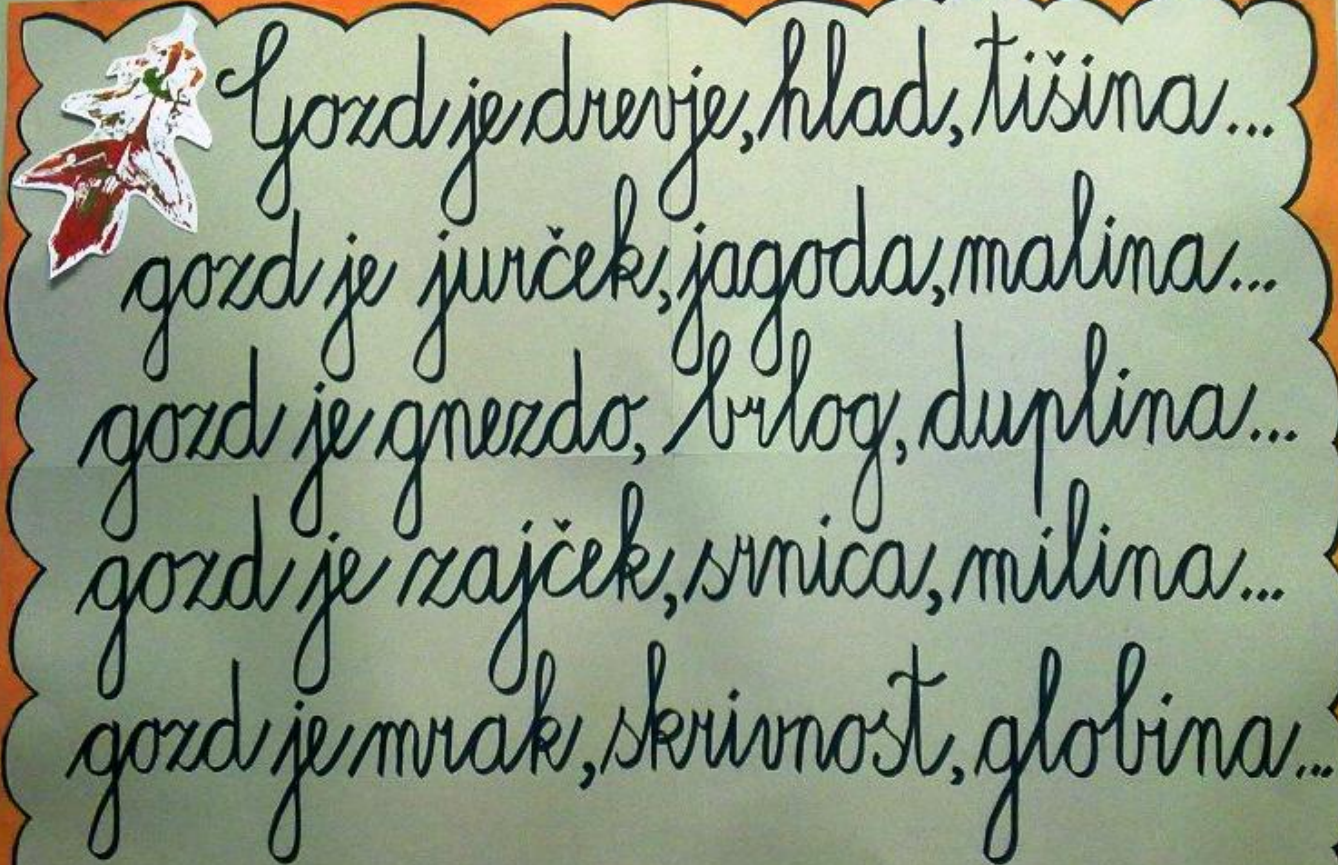 Gozd je drevje, hlad, tišina...
gozd je jurček, jagoda, malina...
gozd je gnezdo, brlog, duplina...
gozd je zajček, srnica, milina...
gozd je mrak, skrivnost, globina...